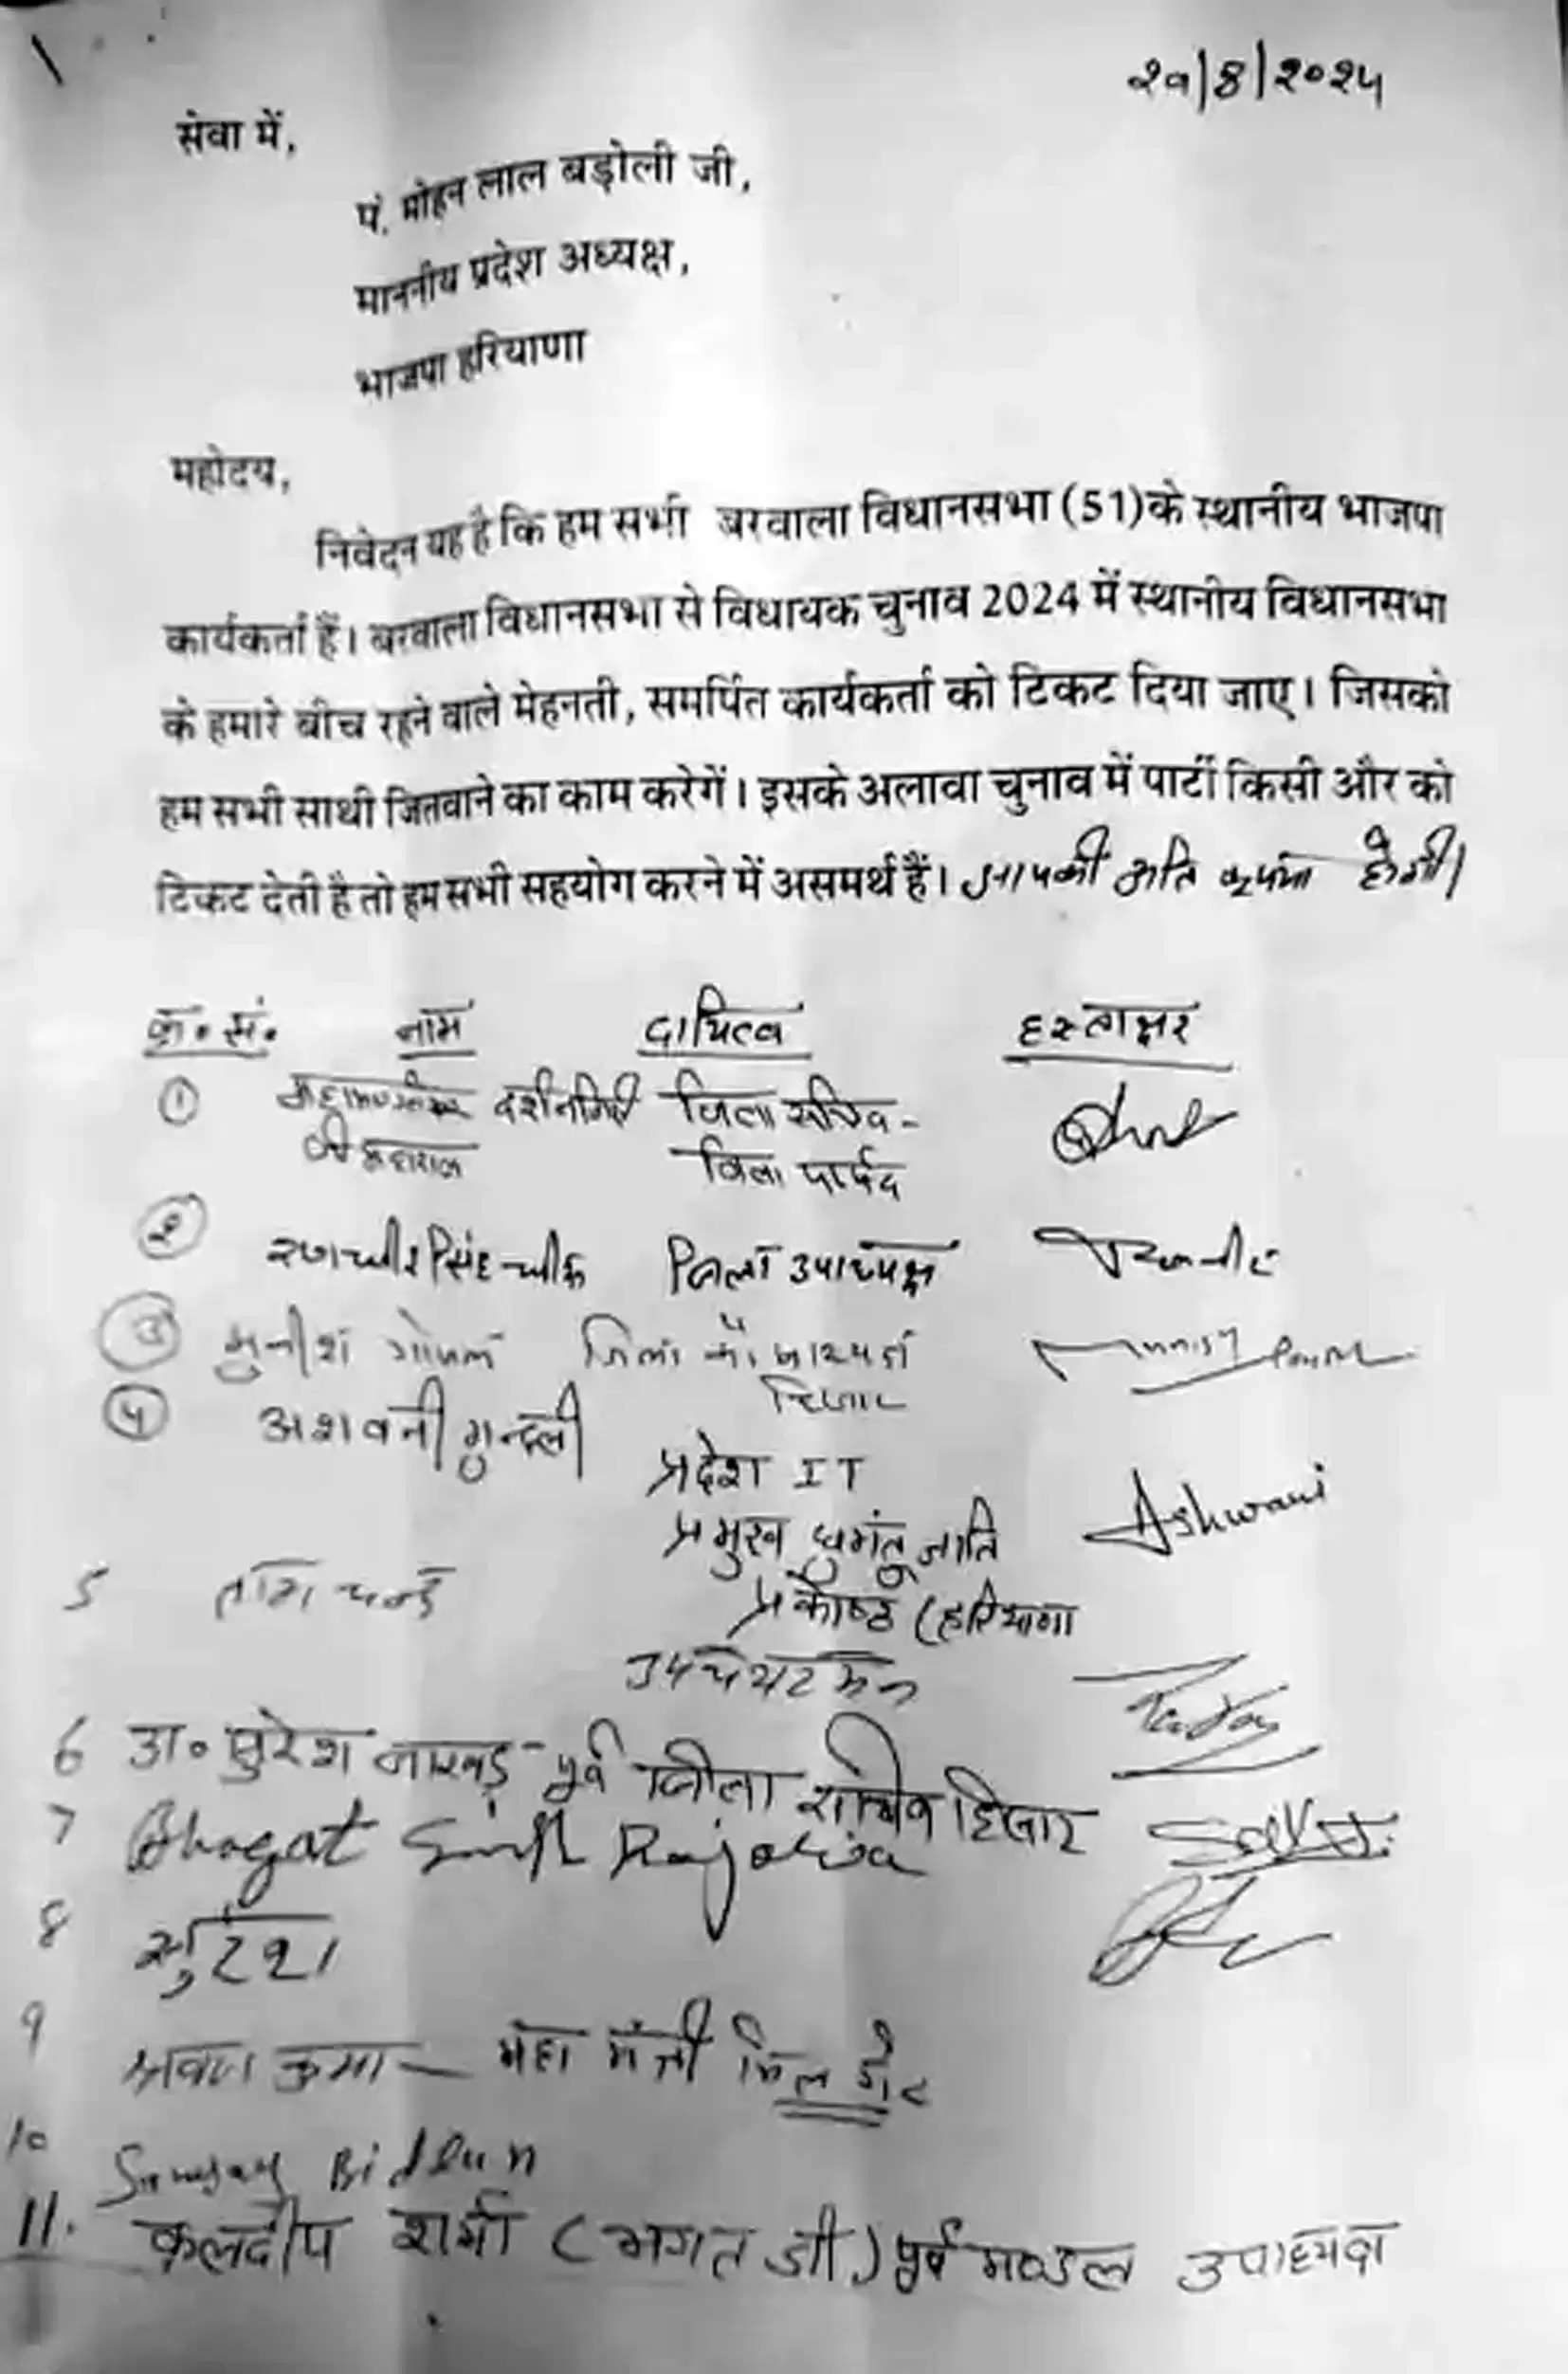 २१/8/२०२४
सेवा में,
पं. मोहन लाल बड़ोली जी,
माननीय प्रदेश अध्यक्ष,
भाजपा हरियाणा
महोदय,
निवेदन यह है कि हम सभी बरवाला विधानसभा (51)के स्थानीय भाजपा
कार्यकर्ता हैं। बरवाला विधानसभा से विधायक चुनाव 2024 में स्थानीय विधानसभा
के हमारे बीच रहने वाले मेहनती, समर्पित कार्यकर्ता को टिकट दिया जाए। जिसको
हम सभी साथी जितवाने का काम करेगें। इसके अलावा चुनाव में पार्टी किसी और को
टिकट देती है तो हम सभी सहयोग करने में असमर्थ हैं। आपकी अति कृपा होगी।
क्र॰ सं॰ नाम दायित्व हस्ताक्षर
① दर्शनगिरी जिला सचिव -
जी महाराज जिला पार्षद
② रणधीर सिंह धीरू जिला उपाध्यक्ष
③ मुनीश गोयल जिला
④ अशवनी
प्रदेश IT
प्रमुख घुमंतू जाति Ashwani
प्रकोष्ठ (हरियाणा
5 चन्द
उपचेयरमैन
6 डा॰ सुरेश जाखड़ - पूर्व जिला सचिव हिसार
7 Bhagat Singh
8 सुरेश
9 श्रवण कुमा — महा मंत्री
10 Sanjay
11. कुलदीप शर्मा (भगत जी) पूर्व मण्डल उपाध्यक्ष